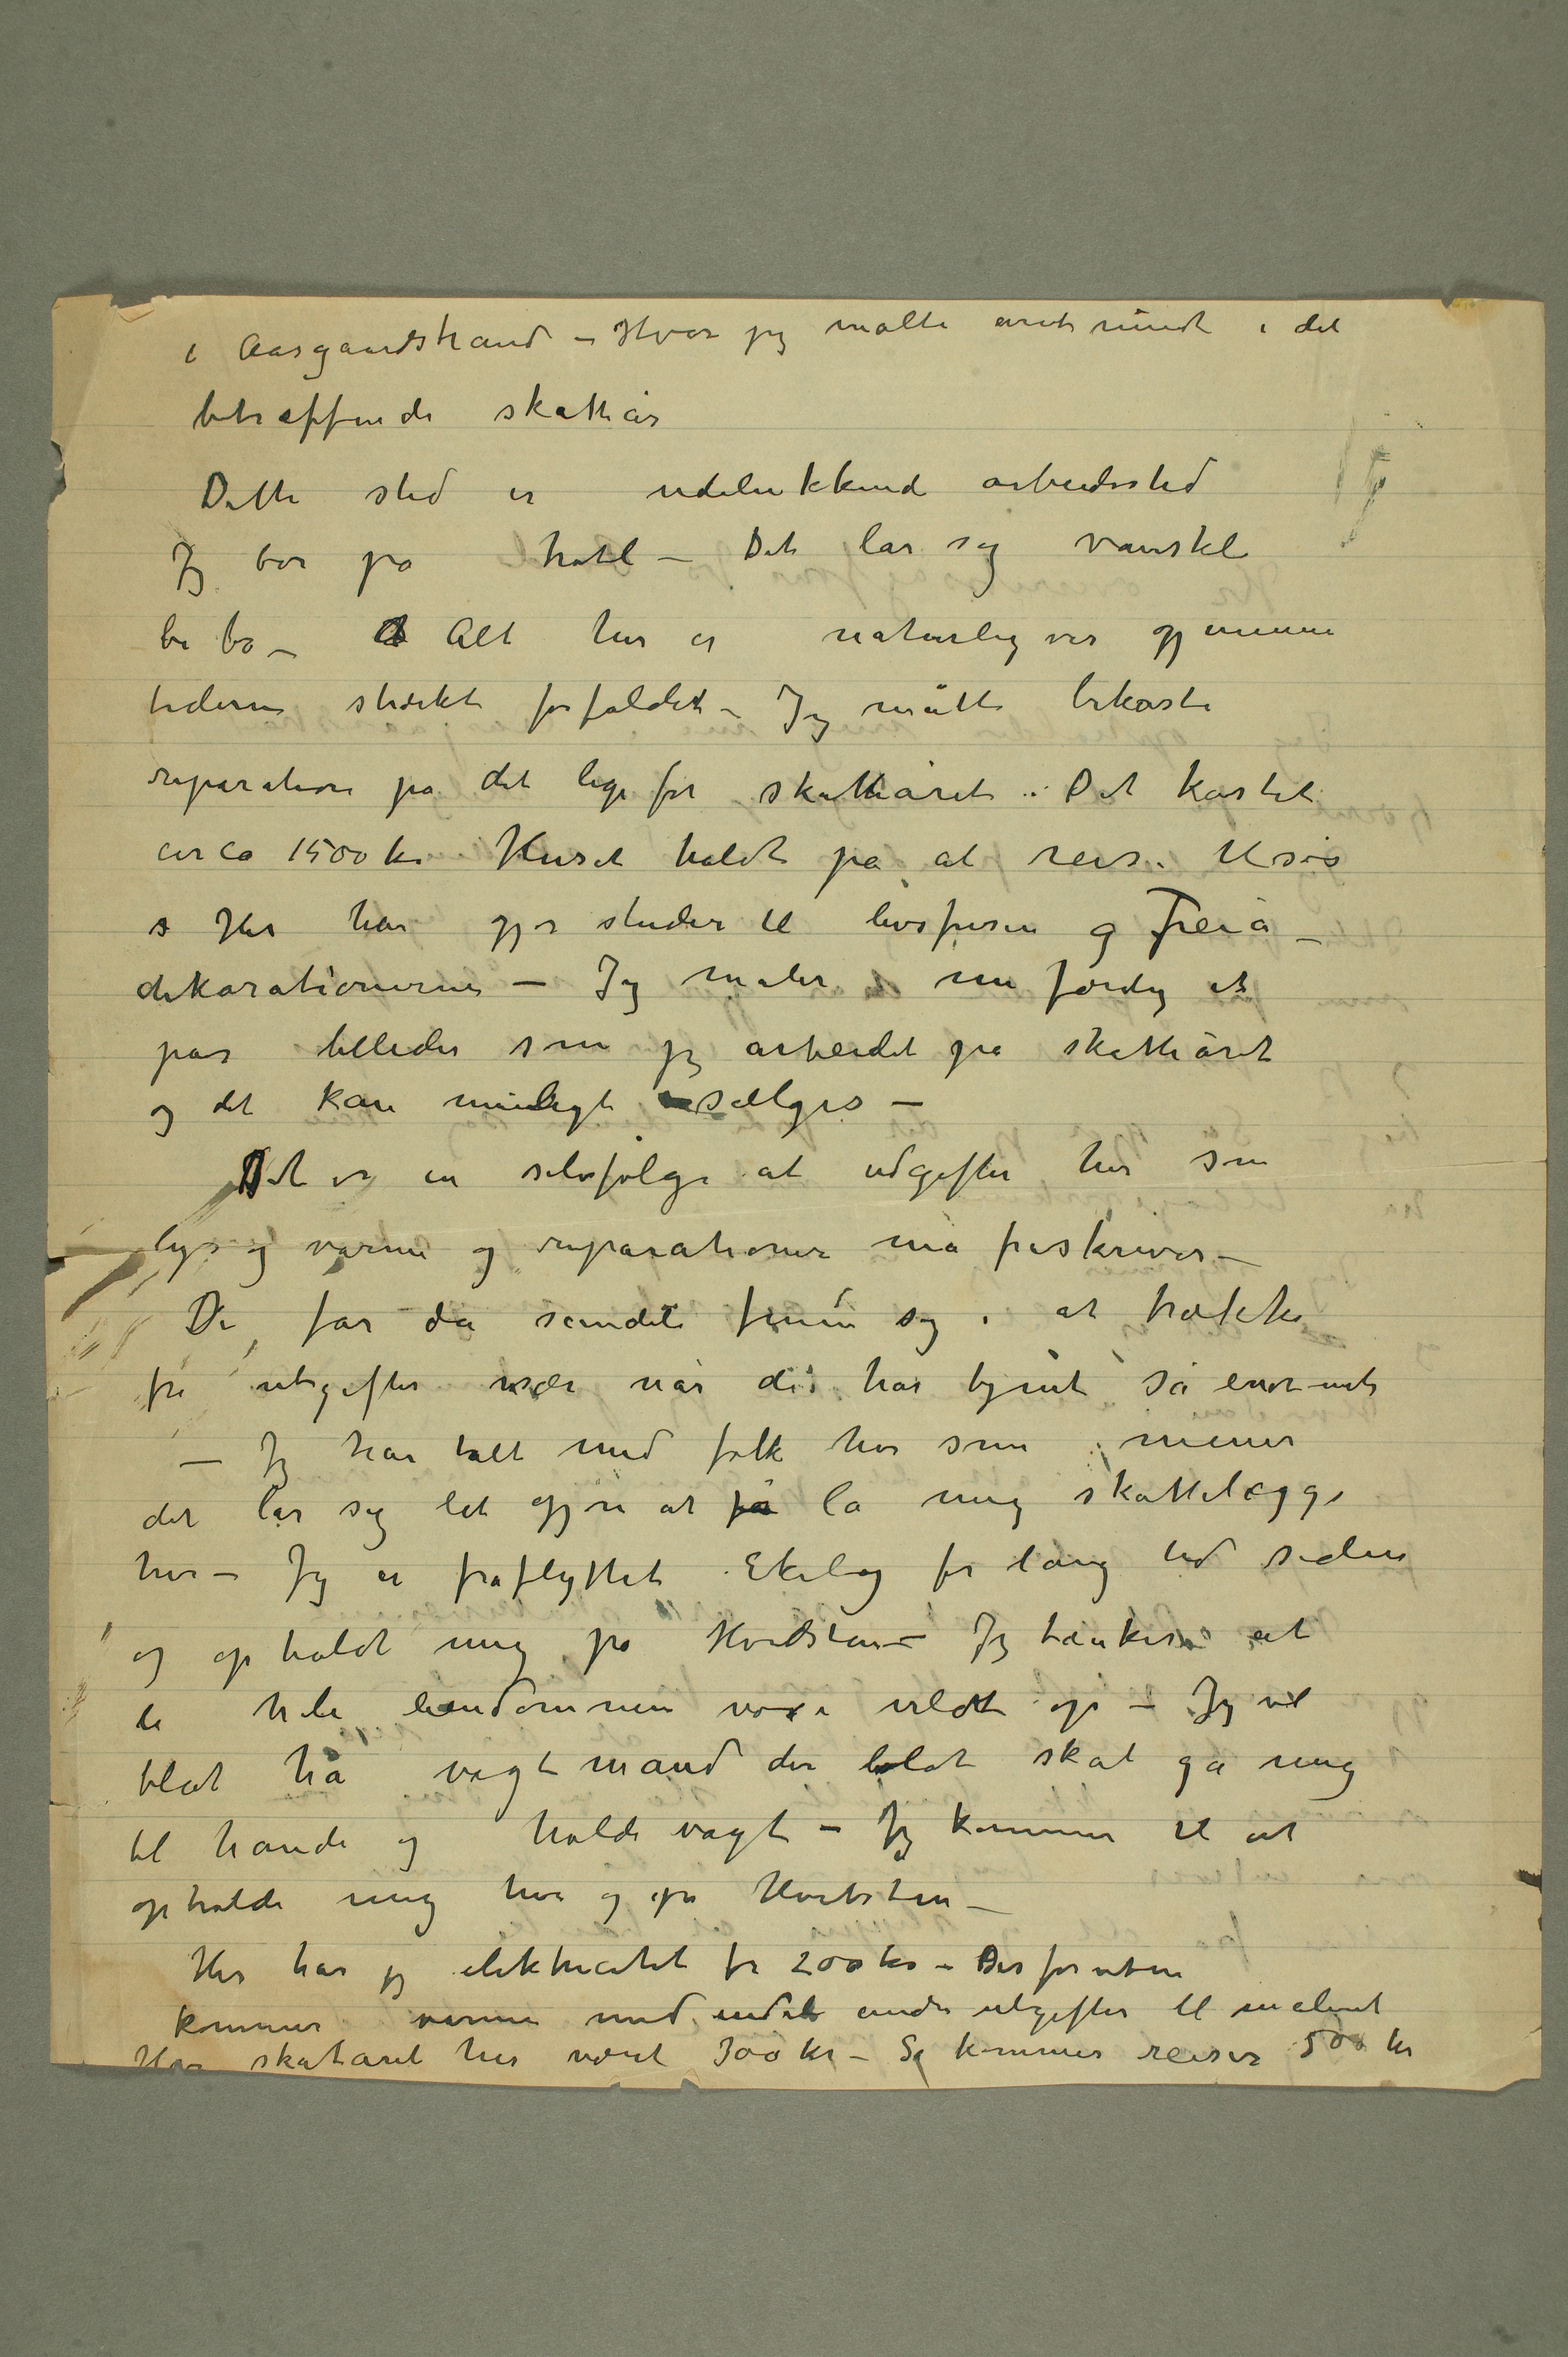 i Aasgaardstrand – Hvor jeg malte året rundt i det
betræffende skatteår
Dette sted er udelukkende arbeidssted
Jeg bor på hotel – Det lar sig vanskeli
bebo – Alt her er naturligvis gjennem
tiderne stærkt forfaldet – Jeg måtte bekoste
reparation på det lige før skatteåret. Det kostet
circa 1500 kr. Huset holdt på at reise til sjøs
Her har jeg studier til livsfrisen og Freia-
dekorationerne – Jeg maler nu færdig et
par billeder som jeg arbeidet på skatteåret
og det kan muligt sælges –
Det er en selvfølge at udgifter her som
lys og varme og reparationer må fraskrives –
De får da sandeli finne sig i at trække
fra utgifter især når de har byent så enormt
– Jeg har talt med folk her som mener
det lar sig let gjøre at få la mig skattelægge
her – Jeg er fraflyttet Ekely for lang tid siden
og opholdt mig på Hvidsten – Jeg tænker at
la hele eiendommen voxe vildt op – Jeg vil
blot ha vagtmand der blot skal gå mig
til hånde og holde vagt – Jeg kommer til at
opholde mig her og på Hvitsten –
Her har jeg elektricitet for 200 kr – Desforuten
kommer varme med endel andre utgifter til maleriet
Har skataret her været 300 kr – Så kommer reiser 500 kr